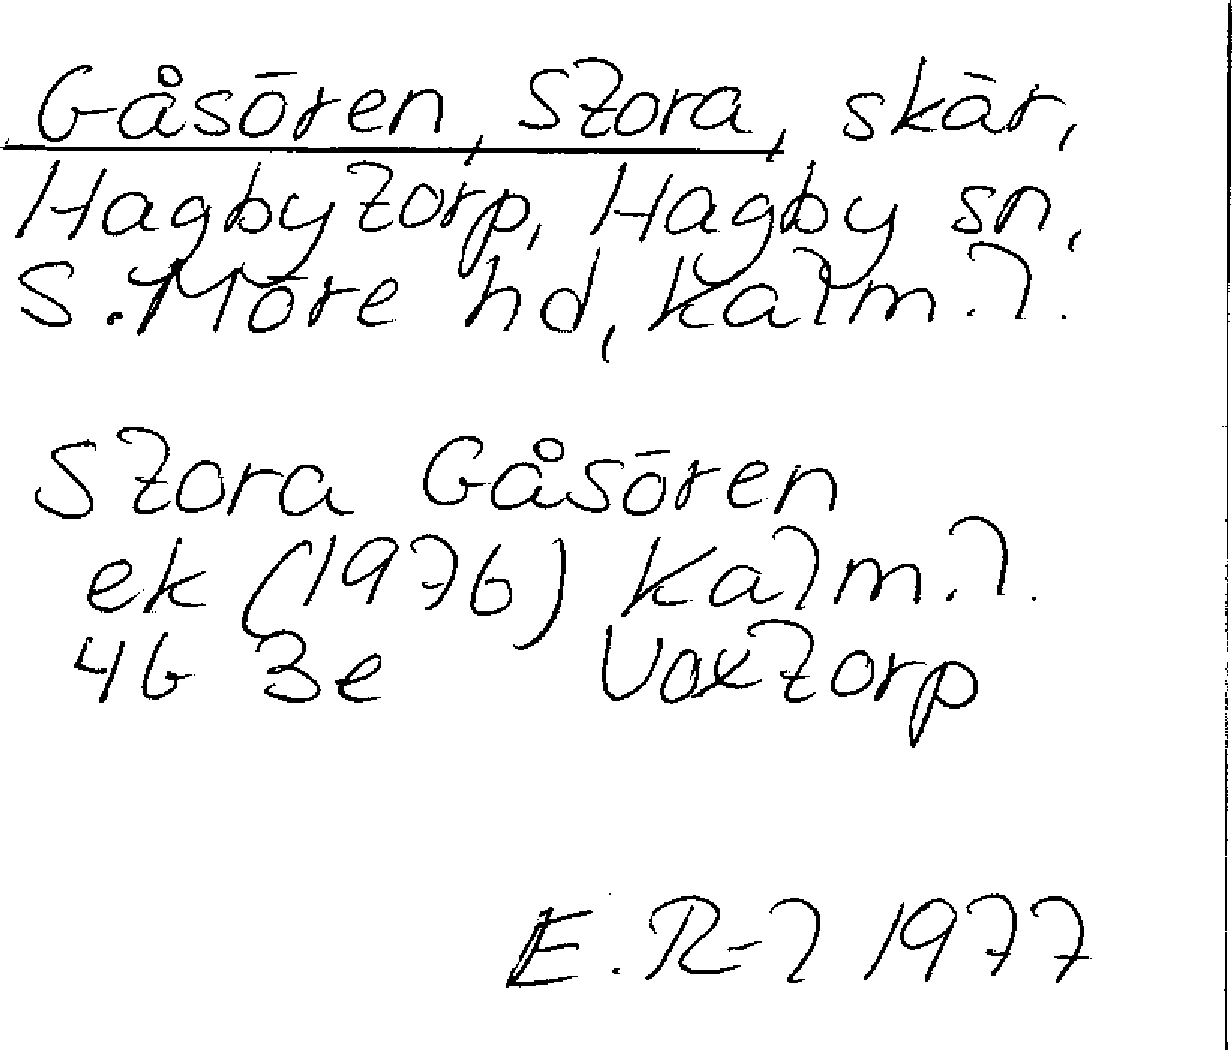 Gåsören, Stora, skär,
Hagbytorp, Hagby sn,
S. Möre hd, Kalm. l.
Stora Gåsören
ek (1976) Kalm. l.
4G 3e Voxtorp
E. R-l 1977